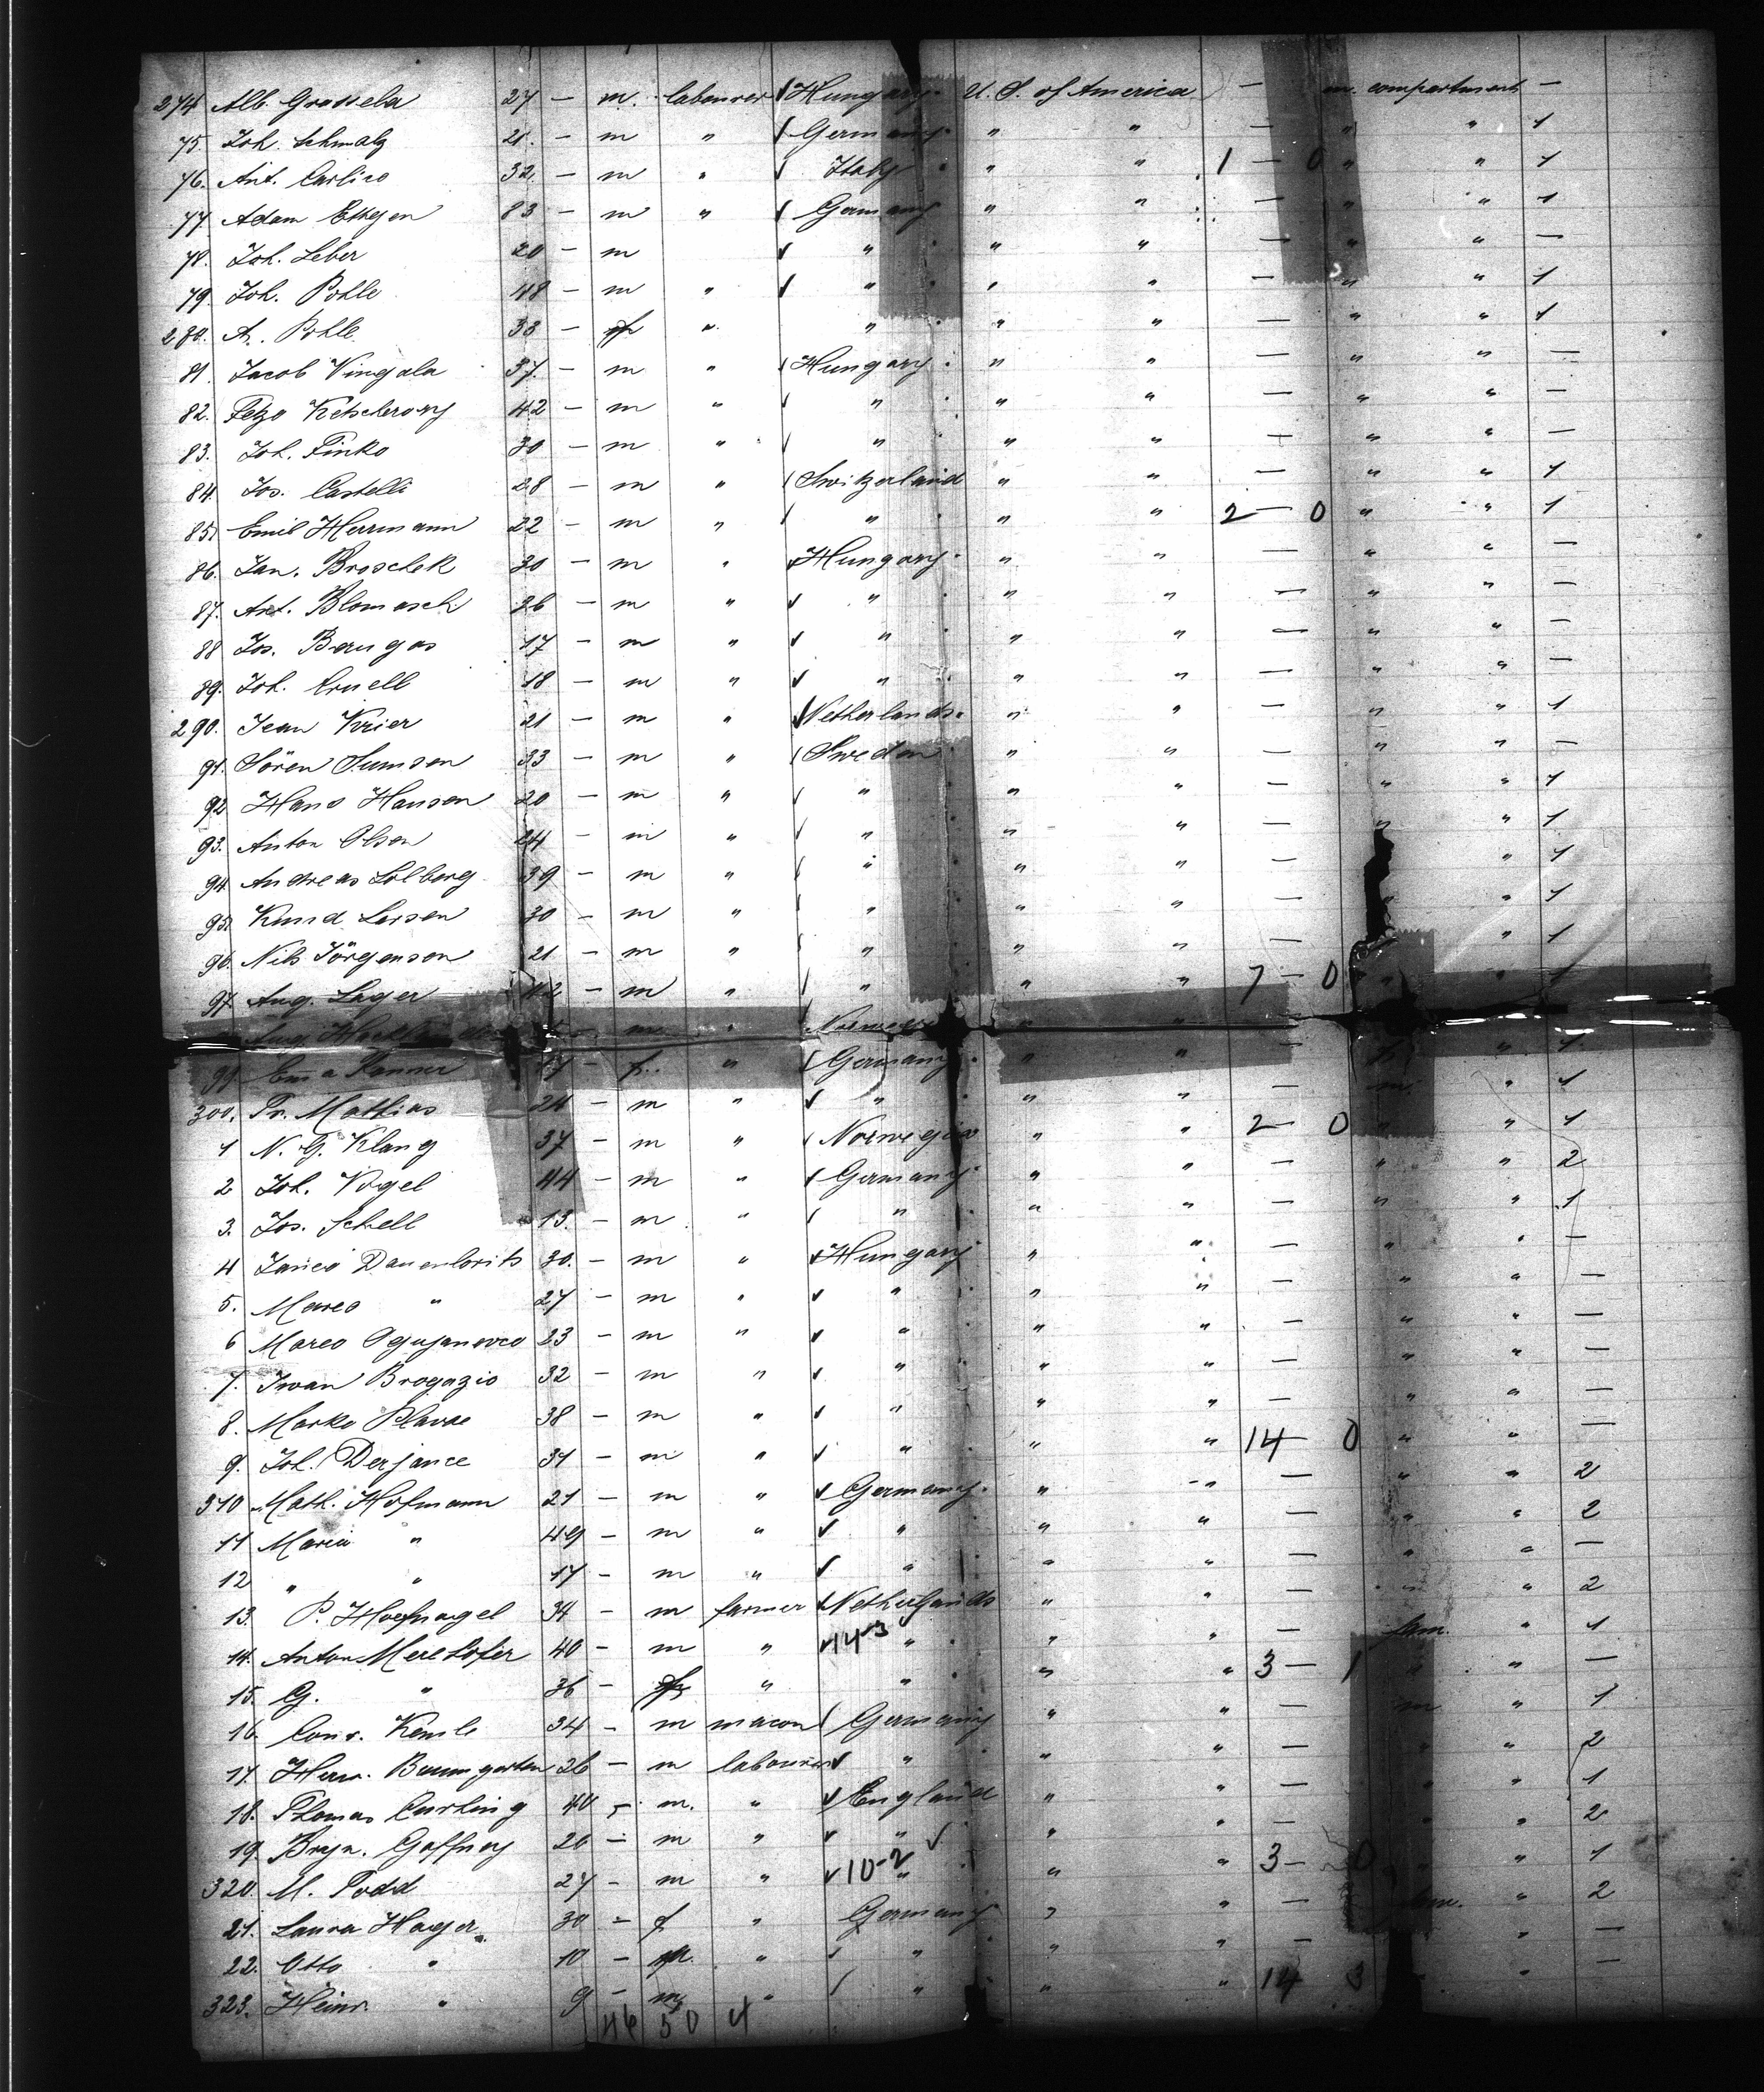 274 Alb. Grossela 27 — m. labourer Hungary. U.S. of America — m. compartment —
75. Joh. Schmalz 21. — m " Germany. " " — " " 1
76. Ant. Carlico 32. — m " Italy " " 1 — 0 " " 1
77. Adam 83 — m " Germany " " — " " 1
78. Joh. Leber 20 — m " " " — " " —
79. Joh. Pohle 48 — m " " " " — " " 1
280. A. Pohle 38 — f " " " " — " " 1
81. Jacob Vingala 37. — m " Hungary " " — " " —
82. 42 — m " " " " — " " —
83. Joh. Finko 30 — m " " " " — " " —
84. Jos. Castelli 28 — m " Switzerland " " — " " 1
85. Emil Herrmann 22 — m " " " " 2 — 0 " " 1
86. Jan. Broschek 30 — m " Hungary. " " — " " —
87. Ant. Blomasch 26 — m " " " " — " " —
88 Jos. 17 — m " " " " — " " —
89. Joh. 18 — m " " " " — " " —
290. Jean Krier 21 — m " Netherlands. " " — " " 1
91. Sören 33 — m " Sweden " " — " " —
92 Hans Hansen 20 — m " " " " — " " 1
93. Anton Olson 24 — m " " " " — " " 1
94. Andreas Solberg 39 — m " " " " — " 1
95. Knud Larsen 30 — m " " " " — " 1
96. Nils Jörgenson 21 — m " " " " — " 1
97. Aug. Lager 42 — m " " " " 7 — 0 " " 1
Aug. m " " " 1
99 Emma f. " Germany " " — " 1
300. Fr. Mathias 24 — m " " " " — m. " 1
1 N. G. Klang 37 — m " Norwegia " " 2 — 0 " " 1
2 Joh. Vogel 44 — m " Germany " " — " " 2
3. Jos. Schell 13. — m " " " " — " " 1
4 30. — m " Hungary " " — " " —
5. Marco " 27 — m " " " " — " " —
6 Marco 23 — m " " " " — " " —
7. Iwan Brogazio 32 — m " " " " — " " —
8. Marko 38 — m " " " " — " " —
9. Joh. Derjance 34 — m " " " " 14 — 0 " " —
310 Math. Hofmann 21 — m " Germany. " " — " " 2
11 Maria " 49 — m " " " " — " " 2
12 " " 17 — m " " " " — " " —
13. P. Hoefnagel 34 — m farmer Netherlands " " — " " 2
14. Anton 40 — m " 14-3 " " " — fam. " 1
15. G. " 36 — f " " " " 3 — 1 " " —
16. Conr. Kemle 34 — m macon Germany " " — m " 1
17. Herm. Baumgarten 26 — m labourer " " " — " " 2
18. Thomas Curling 40 — m. " England " " — " " 1
19. Gaffney 26 — m " " " " — " " 2
320. M. Todd 27 — m " 10-2 " " " 3 — 0 " " 1
21. Laura Hager 30 — f " Germany " " — fam. " 2
22. Otto " 10 — m. " " " " — " —
323. Heinr. " 9 — m " " " " 14 3 " —
46 50 4